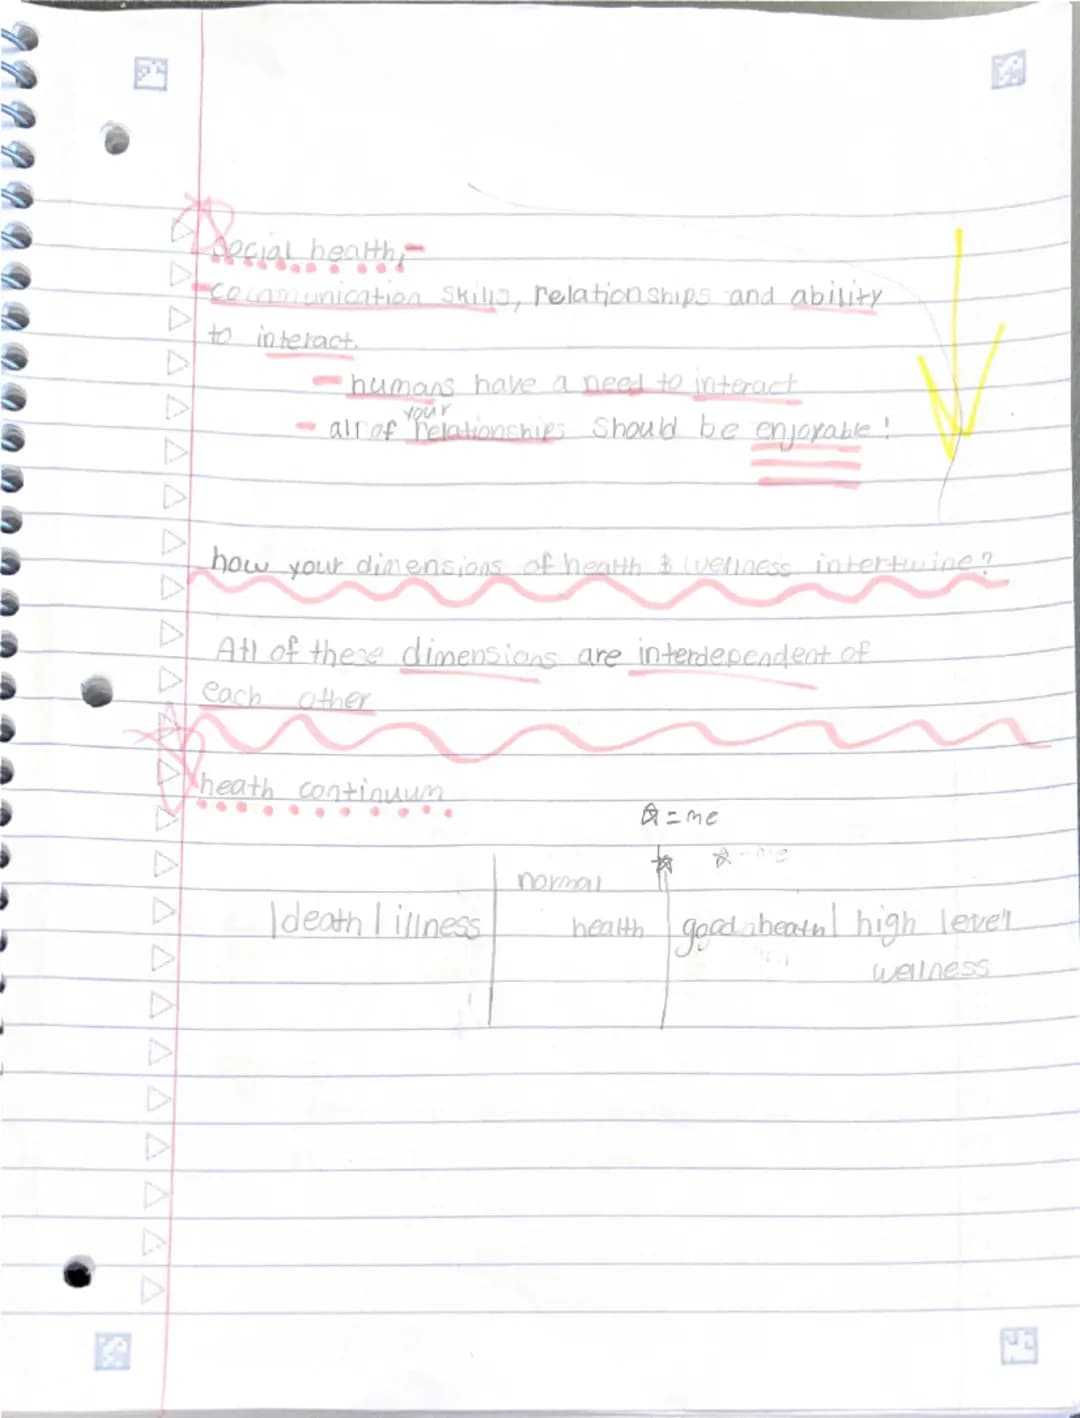 Social health,-
- communication skills, relationships and ability
to interact.
- humans have a need to interact
your
- all of relationships should be enjoyable!
how your dimensions of health & wellness intertwine?
All of these dimensions are interdependent of
each other
heath continuum
☆ = me
☆ - me
normal
|death | illness | health | good heath | high level
wellness